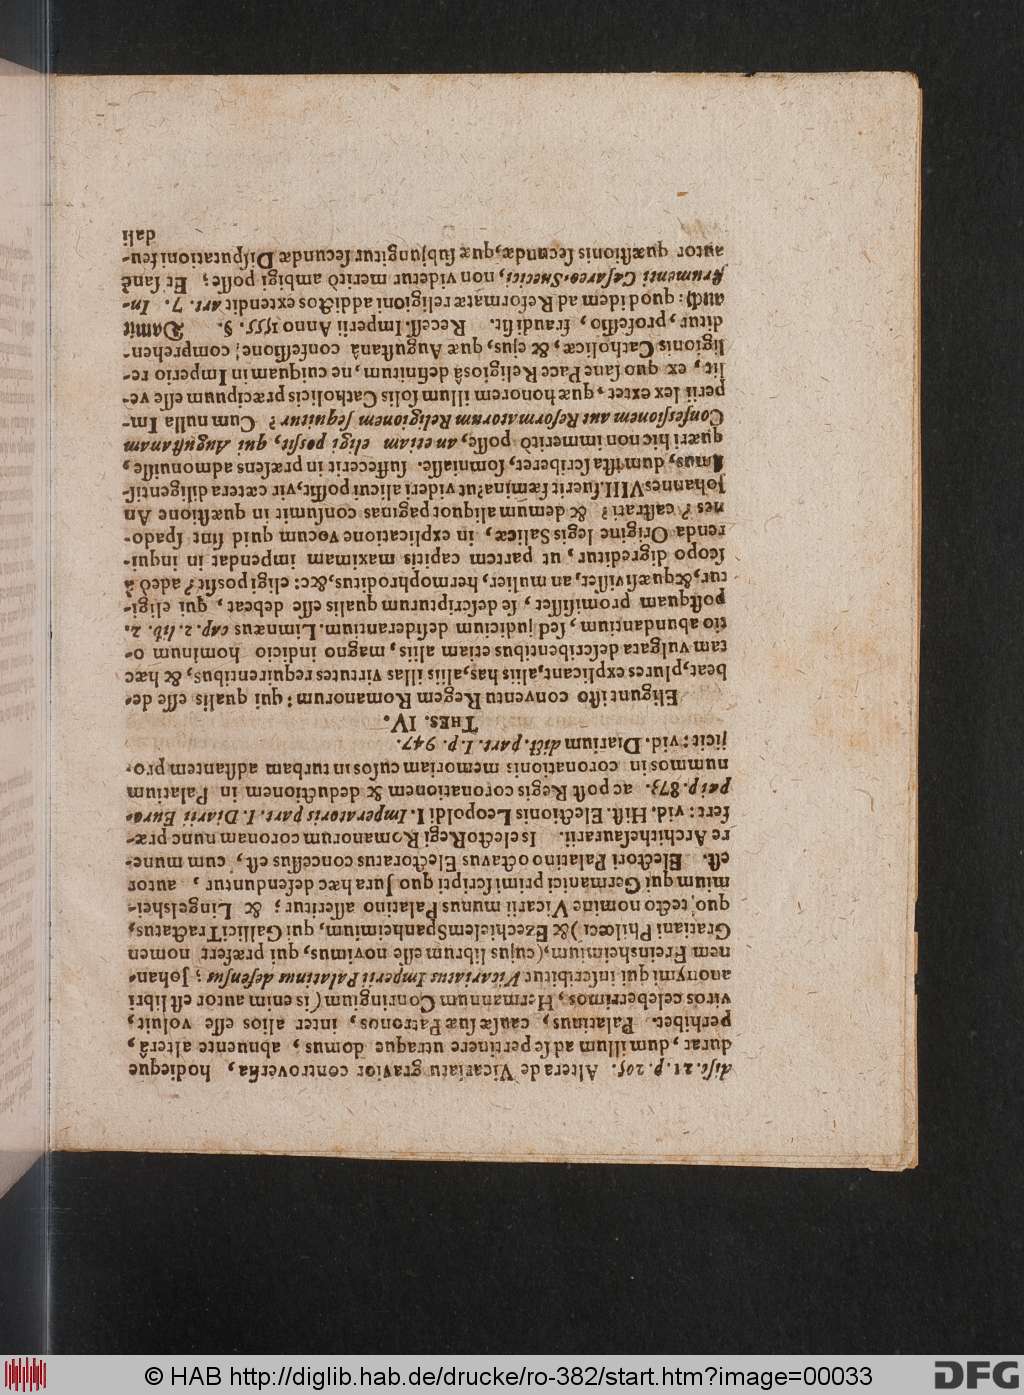 disc. 21. p. 205. Altera de Vicariatu gravior controversia, hodieque
durat, dum illum ad se pertinere utraque domus, abnuente alterâ,
perhibet. Palatinus, causæ suæ Patronos, inter alios esse voluit,
viros celeberrimos, Hermannum Conringium (is enim autor est libri
anonymi qui inscribitur Vicariatus Imperii Palatinus defensus; Johan-
nem Freinshemium, (cujus librum esse novimus, qui præfert nomen
Gratiani Philœci) & Ezechielem Spanheimium, qui Gallici Tractatus,
quo, tecto nomine Vicarii munus Palatino asseritur; & Lingelshei-
mium qui Germanici primi scripti quo Jura hæc defenduntur, autor
est. Electori Palatino octavus Electoratus concessus est, cum mune-
re Archithesaurarii. Is electo Regi Romanorum coronam nunc præ-
fert: vid. Hist. Electionis Leopoldi I. Imperatoris part. I. Diarii Euro-
pæi p. 873. ac post Regis coronationem & deductionem in Palatium
nummos in coronationis memoriam cusos in turbam adstantem pro-
jicit: vid. Diarium dict. part. I. p. 947.
THES. IV.
Eligunt isto conventu Regem Romanorum: qui qualis esse de-
beat, plures explicant, aliis has, aliis illas virtutes requirentibus, & hæc
tam vulgata describentibus etiam aliis, magno indicio hominum o-
tio abundantium, sed judicium desiderantium. Limnæus cap. 2. lib. 2.
postquam promisisset, se descripturum qualis esse debeat, qui eligi-
tur, & quæsivisset, an mulier, hermophroditus, &c: eligi possit? adeò à
scopo digreditur, ut partem capitis maximam impendat in inqui-
renda Origine legis Salicæ, in explicatione vocum quid sint spado-
nes? castrati? & demum aliquot paginas consumit in quæstione An
Johannes VIII. fuerit fæmina? ut videri alicui possit, vir cætera diligentis-
simus, dum ista scriberet, somniasse. suffecerit in præsens admonuisse,
quæri hic non immeritò posse, an etiam eligi possit, qui Augustanam
Confessionem aut Reformatorum Religionem sequitur? Cum nulla Im-
perii lex extet, quæ honorem illum solis Catholicis præcipuum esse ve-
lit, ex quo sane Pace Religiosâ definitum, ne cuiquam in Imperio re-
ligionis Catholicæ, & ejus, quæ Augustanâ confessione; comprehen-
ditur, professio, fraudi sit. Recess. Imperii Anno 1555. §. Damit
auch: quod idem ad Reformatæ religioni addictos extendit art. 7. In-
strumenti Cæsareo-Suecici, non videtur meritò ambigi posse; Et sanè
autor quæstionis secundæ, quæ subjungitur secundæ Disputationi feu-
dali
© HAB http://diglib.hab.de/drucke/ro-382/start.htm?image=00033
DFG